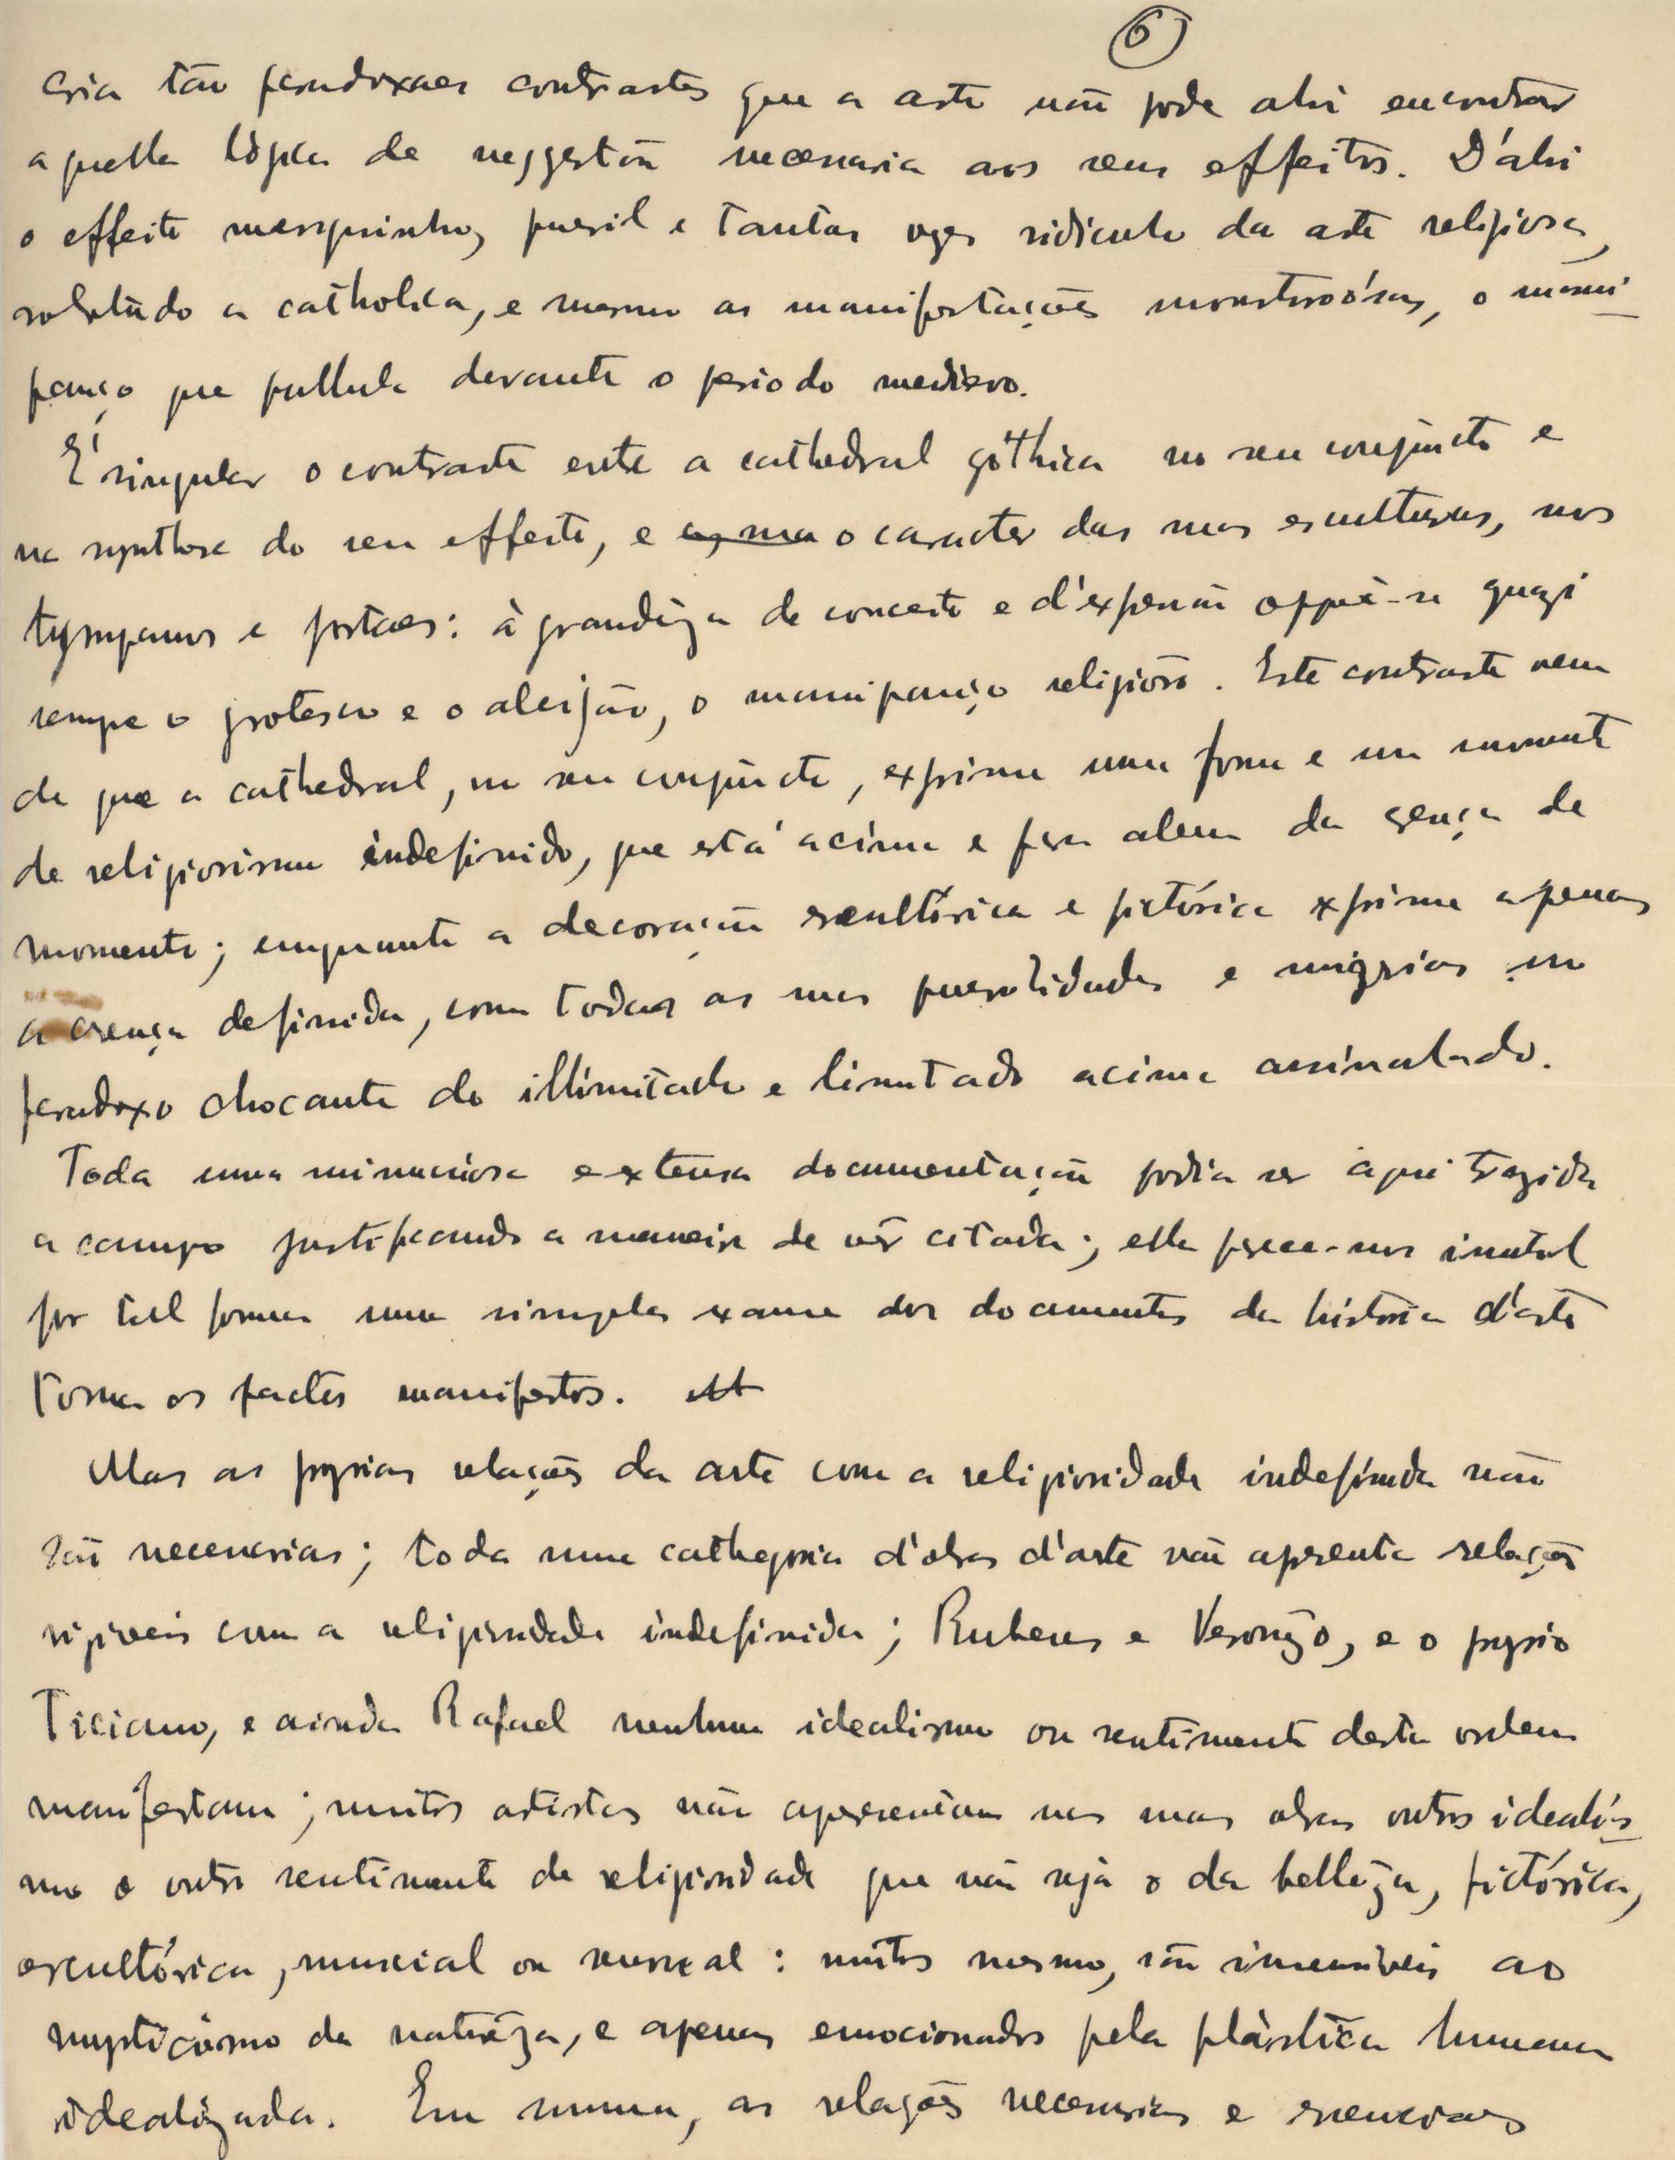 6
cria tão paradoxaes contrastes que a arte não pode ahi encontrar
aquella lógica de suggestão necessaria aos seus effeitos. D'ahi
o effeito mesquinho, pueril e tantas vezes ridiculo da arte religiosa,
sobretudo a catholica, e mesmo as manifestações monstruósas, o mani
panço que pullula durante o periodo mediévo.
É singular o contraste entre a cathedral góthica no seu conjuncto e
na synthese do seu effeito, e o caracter das suas esculturas, nos
tympanos e portaes: à grandêza de conceito e d'expressão oppõe-se quazi
sempre o grotesco e o aleijão, o manipanço religioso. Este contraste vem
de que a cathedral, no seu conjuncto, exprime uma forma e um momento
de religiosismo indefinido, que está acima e para alem da crença de
momento; emquanto a decoração escultórica e pictórica exprime apenas
a crença definida, com todas as suas puerilidades e mizérias no
paradoxo chocante do illimitado e limitado acima assinalado.
Toda uma minuciosa e extensa documentação podia ser aqui trazida
a campo justificando a maneira de vêr citada; ella parece-nos inutil
por tal forma um simples exame dos documentos da história d'arte
torna os factos manifestos.
Mas as proprias relações da arte com a religiosidade indefinida não
são necessarias; toda uma cathegoria d'obras d'arte não apresenta relações
sensiveis com a religiosidade indefinida; Rubens e Veronezo, e o proprio
Ticiano, e ainda Rafael nenhum idealismo ou sentimento desta ordem
manifestam; muitos artistas não apresentam nas suas obras outro idealis
mo e outro sentimento de religiosidade que não seja o da bellêza, pictórica,
escultórica, musical ou mural: muitos mesmo, são insensiveis ao
mysticismo da naturêza, e apenas emocionados pela plástica humana
idealizada. Em summa, as relações necessarias e essenciaes